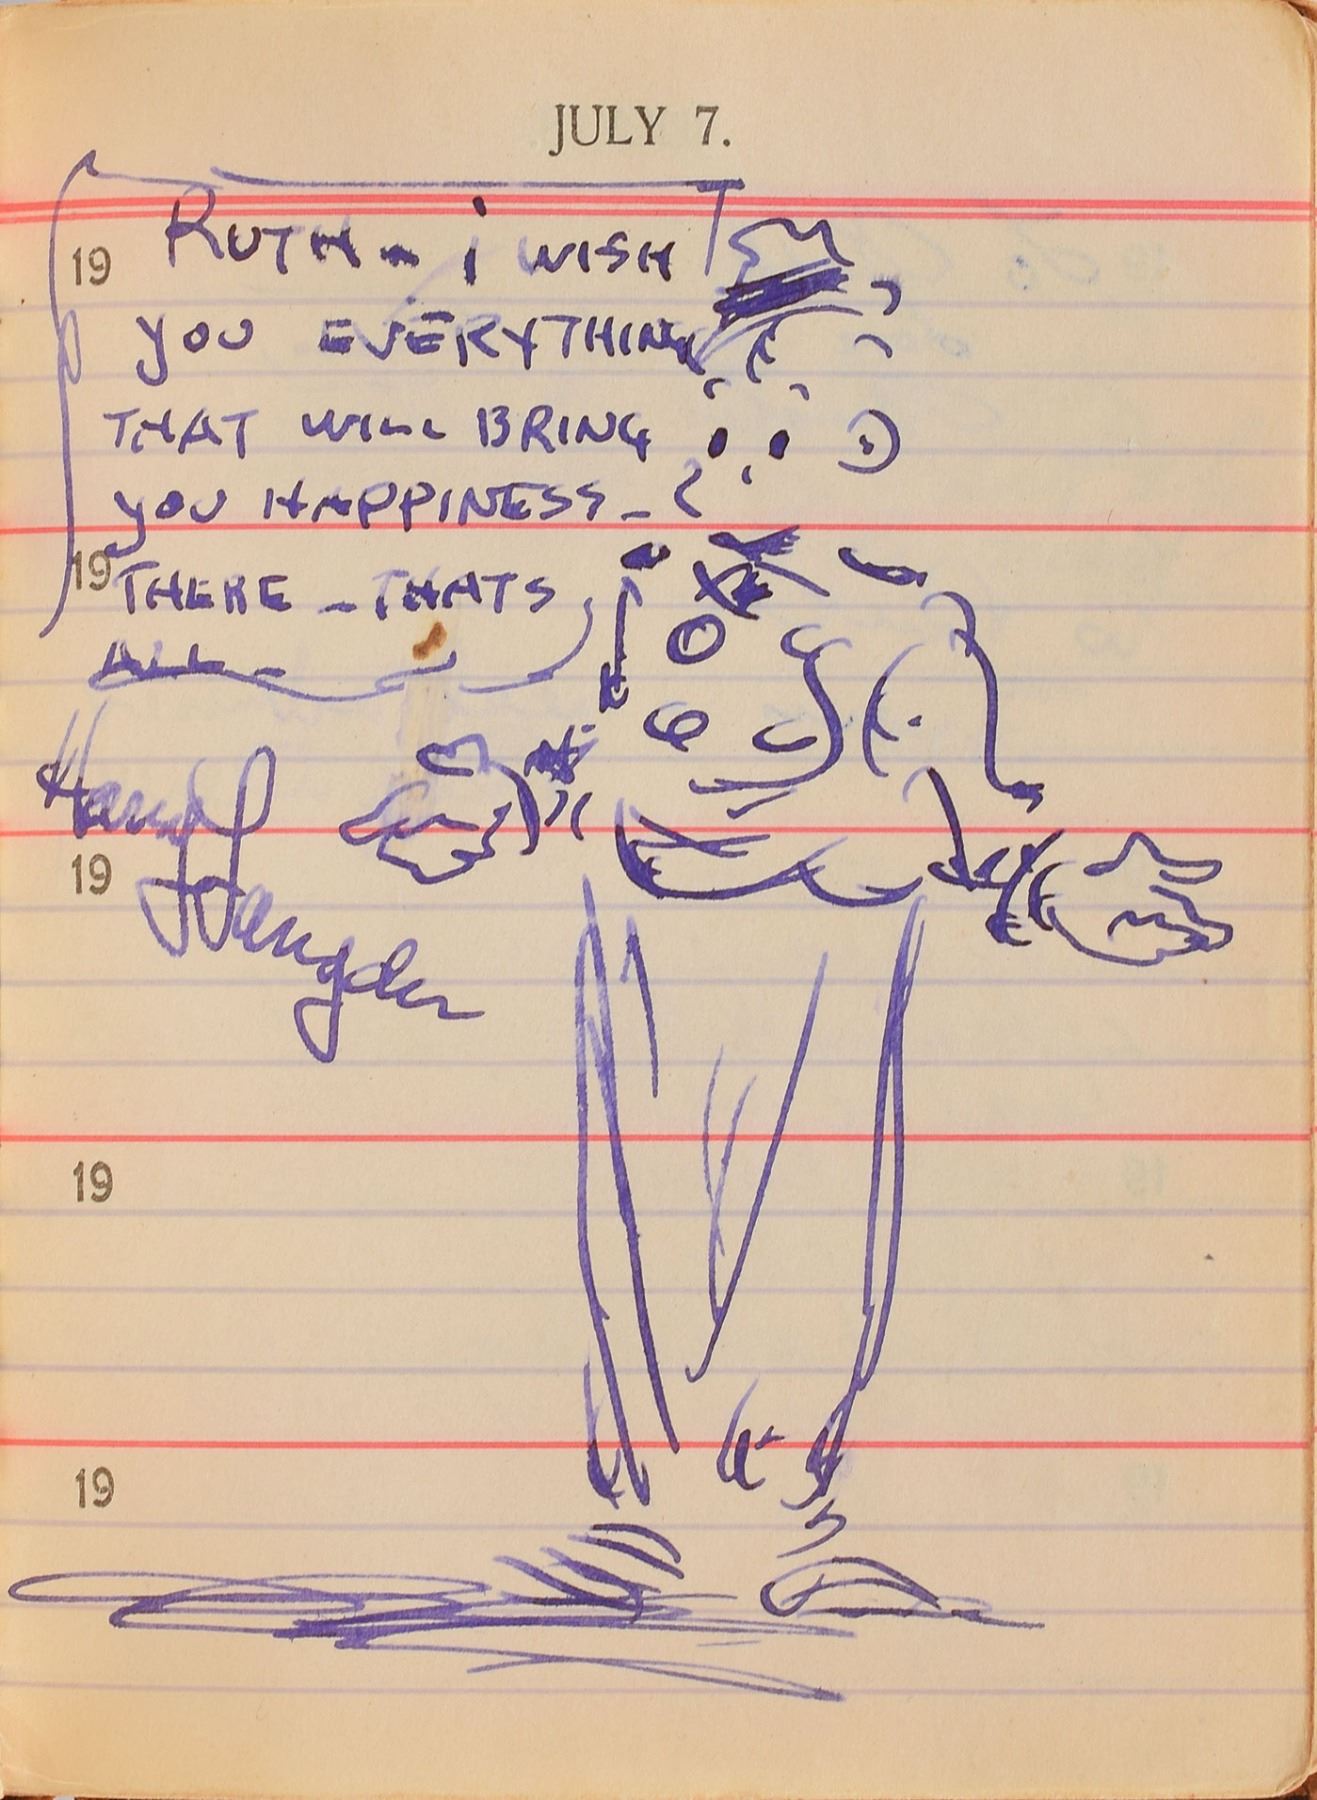 JULY 7.
19 RUTH - i WISH
YOU EVERYTHING
THAT WILL BRING
YOU HAPPINESS -
19 THERE - THATS
ALL -
Harry Langdon
19
19
19